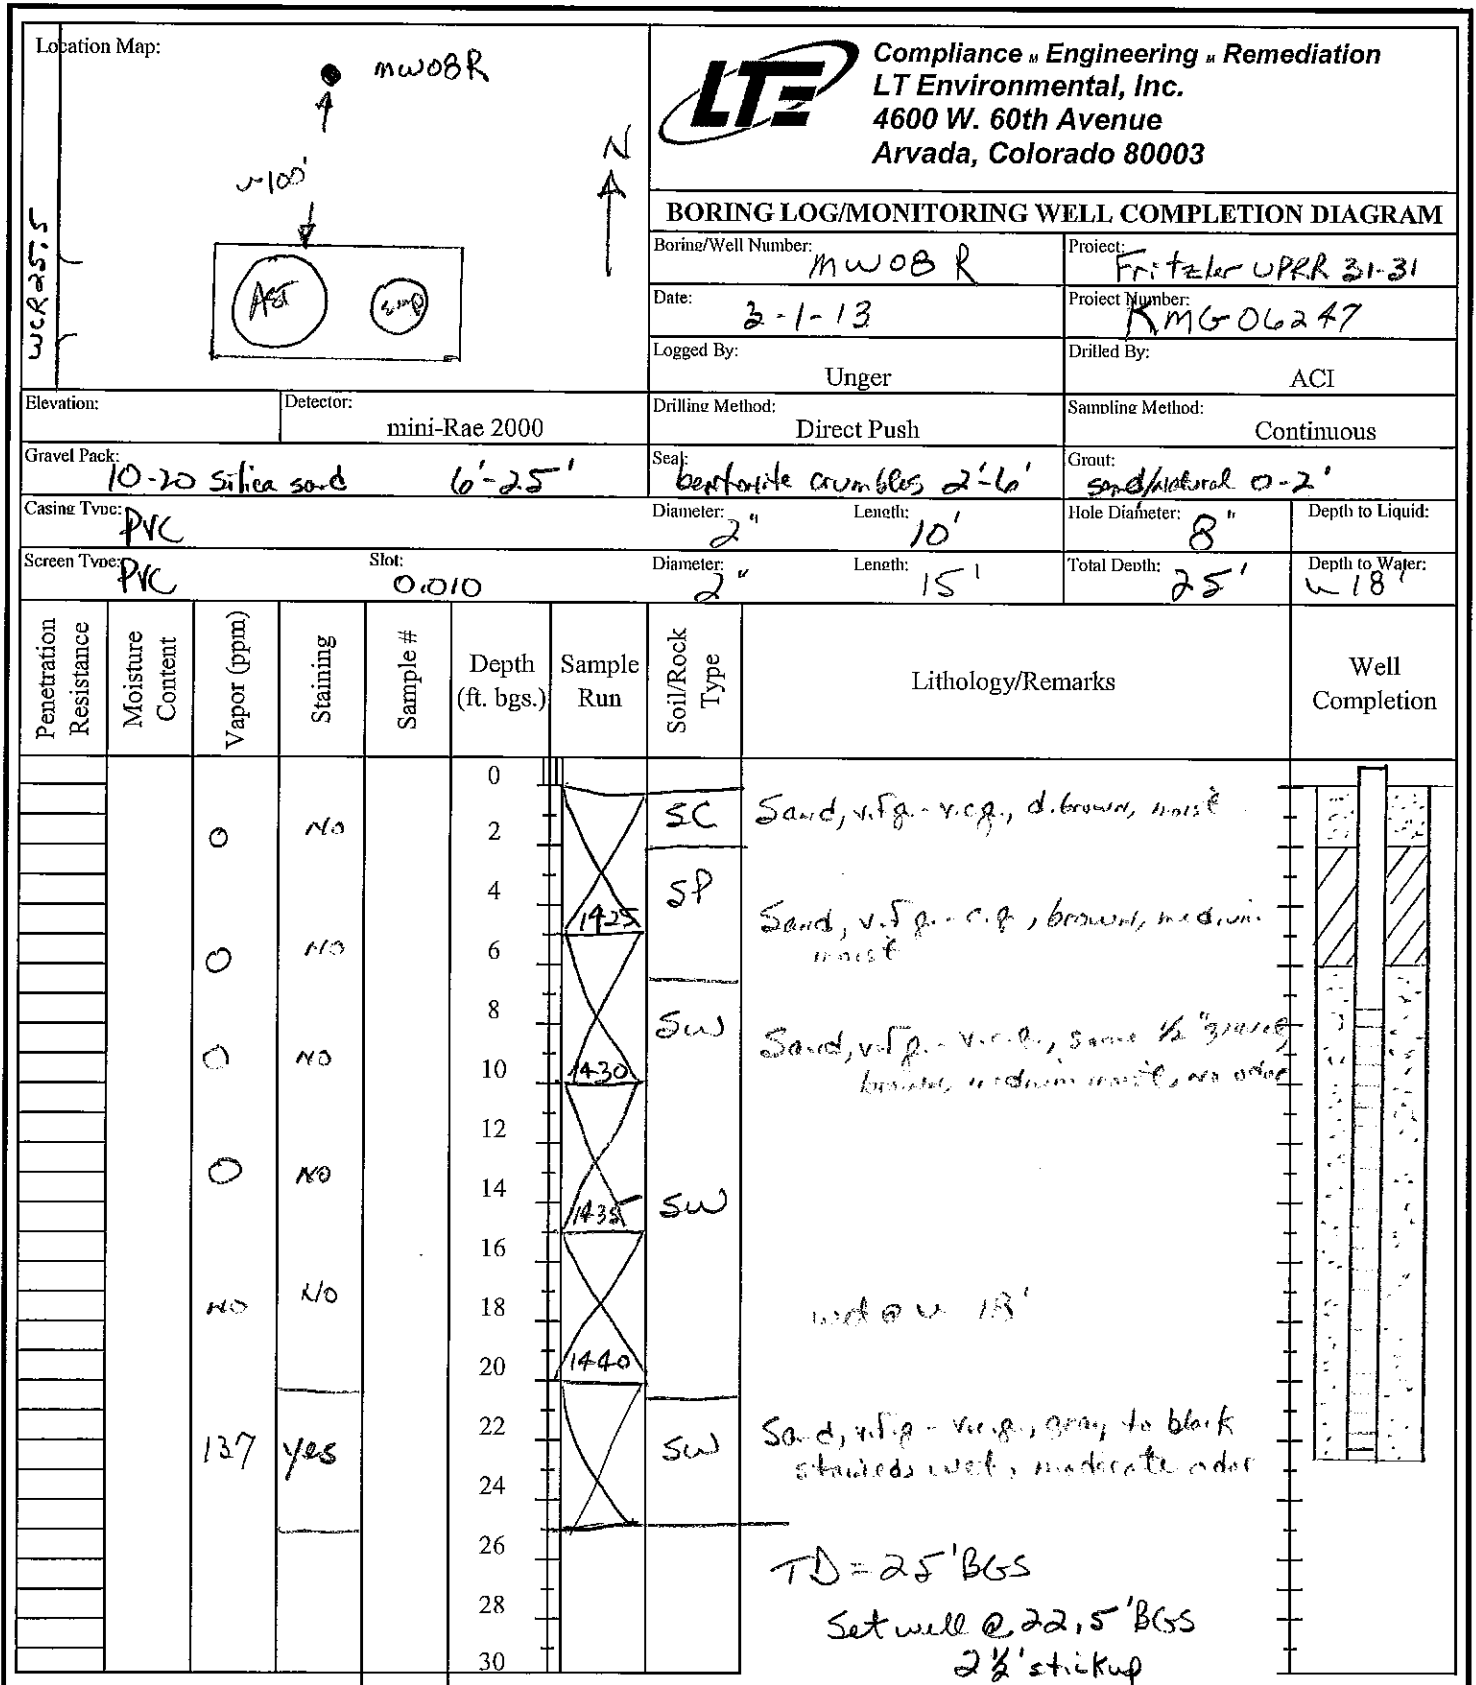 Location Map:
MW08R
~100'
N
WCR 25.5
AST
Sump
LTE
Compliance Engineering Remediation
LT Environmental, Inc.
4600 W. 60th Avenue
Arvada, Colorado 80003
BORING LOG/MONITORING WELL COMPLETION DIAGRAM
Boring/Well Number: MW08R
Project: Fritzler UPRR 31-31
Date: 3-1-13
Project Number: KMG06247
Logged By: Unger
Drilled By: ACI
Elevation:
Detector: mini-Rae 2000
Drilling Method: Direct Push
Sampling Method: Continuous
Gravel Pack: 10-20 silica sand 6'-25'
Seal: bentonite crumbles 2'-6'
Grout: sand/natural 0-2'
Casing Type: PVC
Diameter: 2"
Length: 10'
Hole Diameter: 8"
Depth to Liquid:
Screen Type: PVC
Slot: 0.010
Diameter: 2"
Length: 15'
Total Depth: 25'
Depth to Water: ~18'
Penetration Resistance
Moisture Content
Vapor (ppm)
Staining
Sample #
Depth (ft. bgs.)
Sample Run
Soil/Rock Type
Lithology/Remarks
Well Completion
0
SC Sand, v.f.g. - v.c.g., d.brown, moist
0 NO 2
4 1425 SP
Sand, v.f.g. - c.g., brown, medium
moist
0 NO 6
8 SW
Sand, v.f.g. - v.c.g., some 1/2" gravel,
brown, medium moist, no odor
0 NO 10 1430
12
0 NO
14 1435 SW
16
NO NO 18 wet @ ~ 18'
20 1440
22
137 yes SW Sand, v.f.g - v.c.g., gray to black
stained, wet, moderate odor
24
26
TD = 25' BGS
28
Set well @ 22.5' BGS
30
2 1/2' stickup